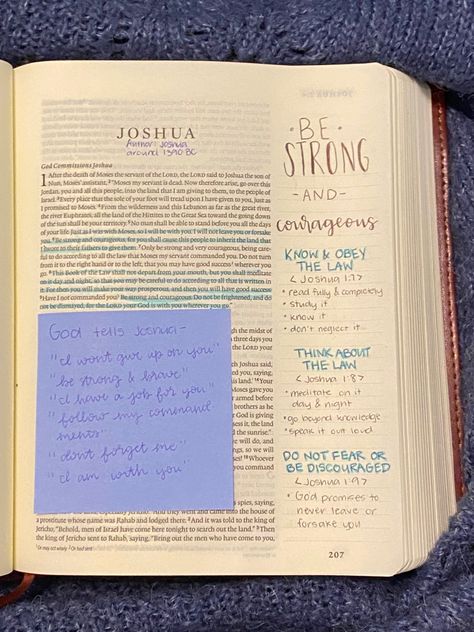 JOSHUA
Author: Joshua
around 1390 BC
God Commissions Joshua
1 After the death of Moses the servant of the LORD, the LORD said to Joshua the son of
Nun, Moses' assistant, 2 "Moses my servant is dead. Now therefore arise, go over this
Jordan, you and all this people, into the land that I am giving to them, to the people of
Israel. 3 Every place that the sole of your foot will tread upon I have given to you, just as
I promised to Moses. 4 From the wilderness and this Lebanon as far as the great river,
the river Euphrates, all the land of the Hittites to the Great Sea toward the going down
of the sun shall be your territory. 5 No man shall be able to stand before you all the days
of your life. Just as I was with Moses, so I will be with you. I will not leave you or forsake
you. 6 Be strong and courageous, for you shall cause this people to inherit the land that
I swore to their fathers to give them. 7 Only be strong and very courageous, being care-
ful to do according to all the law that Moses my servant commanded you. Do not turn
from it to the right hand or to the left, that you may have good success wherever you
go. 8 This Book of the Law shall not depart from your mouth, but you shall meditate
on it day and night, so that you may be careful to do according to all that is written in
it. For then you will make your way prosperous, and then you will have good success.
9 Have I not commanded you? Be strong and courageous. Do not be frightened, and do
not be dismayed, for the LORD your God is with you wherever you go."
God tells Joshua-
"I won't give up on you"
"be strong & brave"
"I have a job for you"
"follow my command
ments"
"don't forget me"
"I am with you"
gh the midst of
three days you
the LORD your
Joshua said,
you, saying,
land.' 14 Your
Moses gave you
armed before
brothers as he
God is giving
ess it, the land
the sunrise."
we will do, and
ings, so we will
es! 18 Whoever
you command
spies, saying,
And they went and came into the house of
a prostitute whose name was Rahab and lodged there. 2 And it was told to the king of
Jericho, "Behold, men of Israel have come here tonight to search out the land." 3 Then
the king of Jericho sent to Rahab, saying, "Bring out the men who have come to you,
1 Or may act wisely 2 Or had sent
BE
STRONG
-AND-
courageous
KNOW & OBEY
THE LAW
< Joshua 1:7 >
• read fully & completely
• study it
• know it
• don't neglect it
THINK ABOUT
THE LAW
< Joshua 1:8 >
• meditate on it
day & night
• go beyond knowledge
• speak it out loud
DO NOT FEAR OR
BE DISCOURAGED
< Joshua 1:9 >
• God promises to
never leave or
forsake you
207